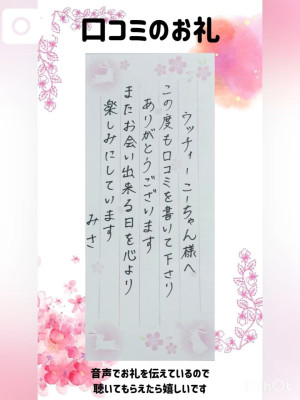 口コミのお礼
ウッティーこーちゃん様へ
この度も口コミを書いて下さり
ありがとうございます
またお会い出来る日を心より
楽しみにしています
みさ
音声でお礼を伝えているので
聴いてもらえたら嬉しいです